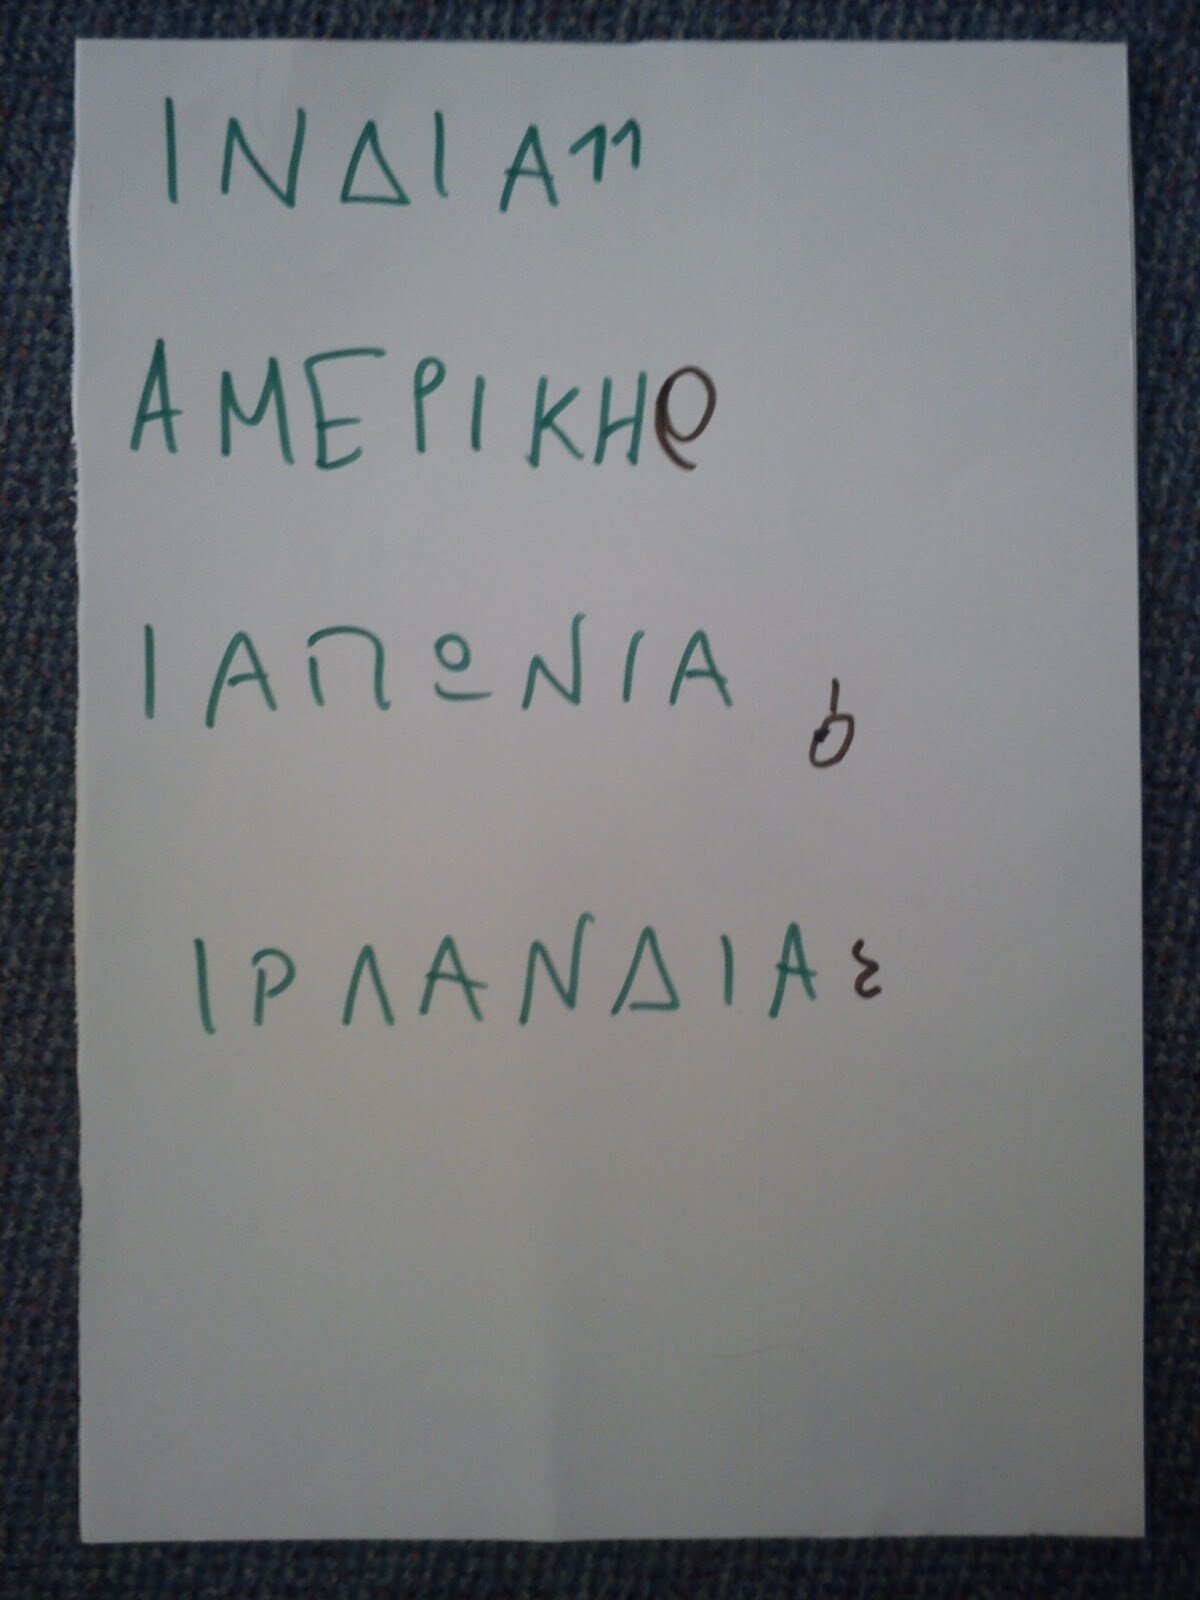 ΙΝΔΙΑ 11
ΑΜΕΡΙΚΗ 9
ΙΑΠΩΝΙΑ 6
ΙΡΛΑΝΔΙΑ 3